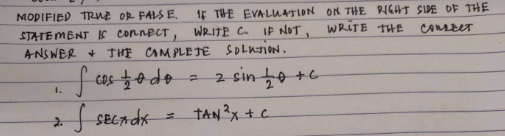 MODIFIED TRUE OR FALSE. IF THE EVALUATION ON THE RIGHT SIDE OF THE
STATEMENT IS CORRECT, WRITE C. IF NOT, WRITE THE CORRECT
ANSWER & THE COMPLETE SOLUTION.
1. ∫ cos ½ θ dθ = 2 sin ½ θ + c
2. ∫ SECx dx = TAN²x + c